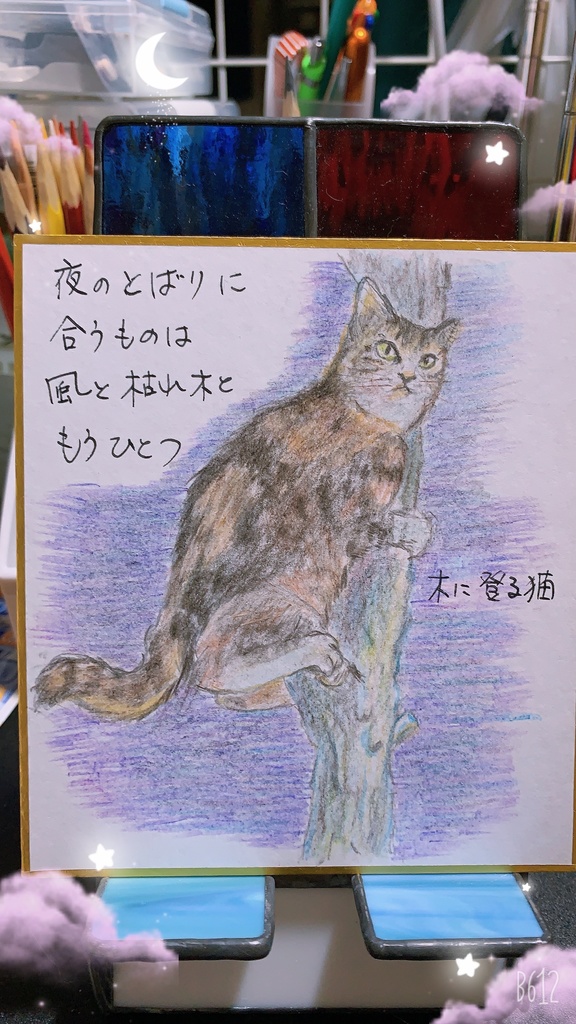 夜のとばりに
合うものは
風と枯れ木と
もうひとつ
木に登る猫
B612